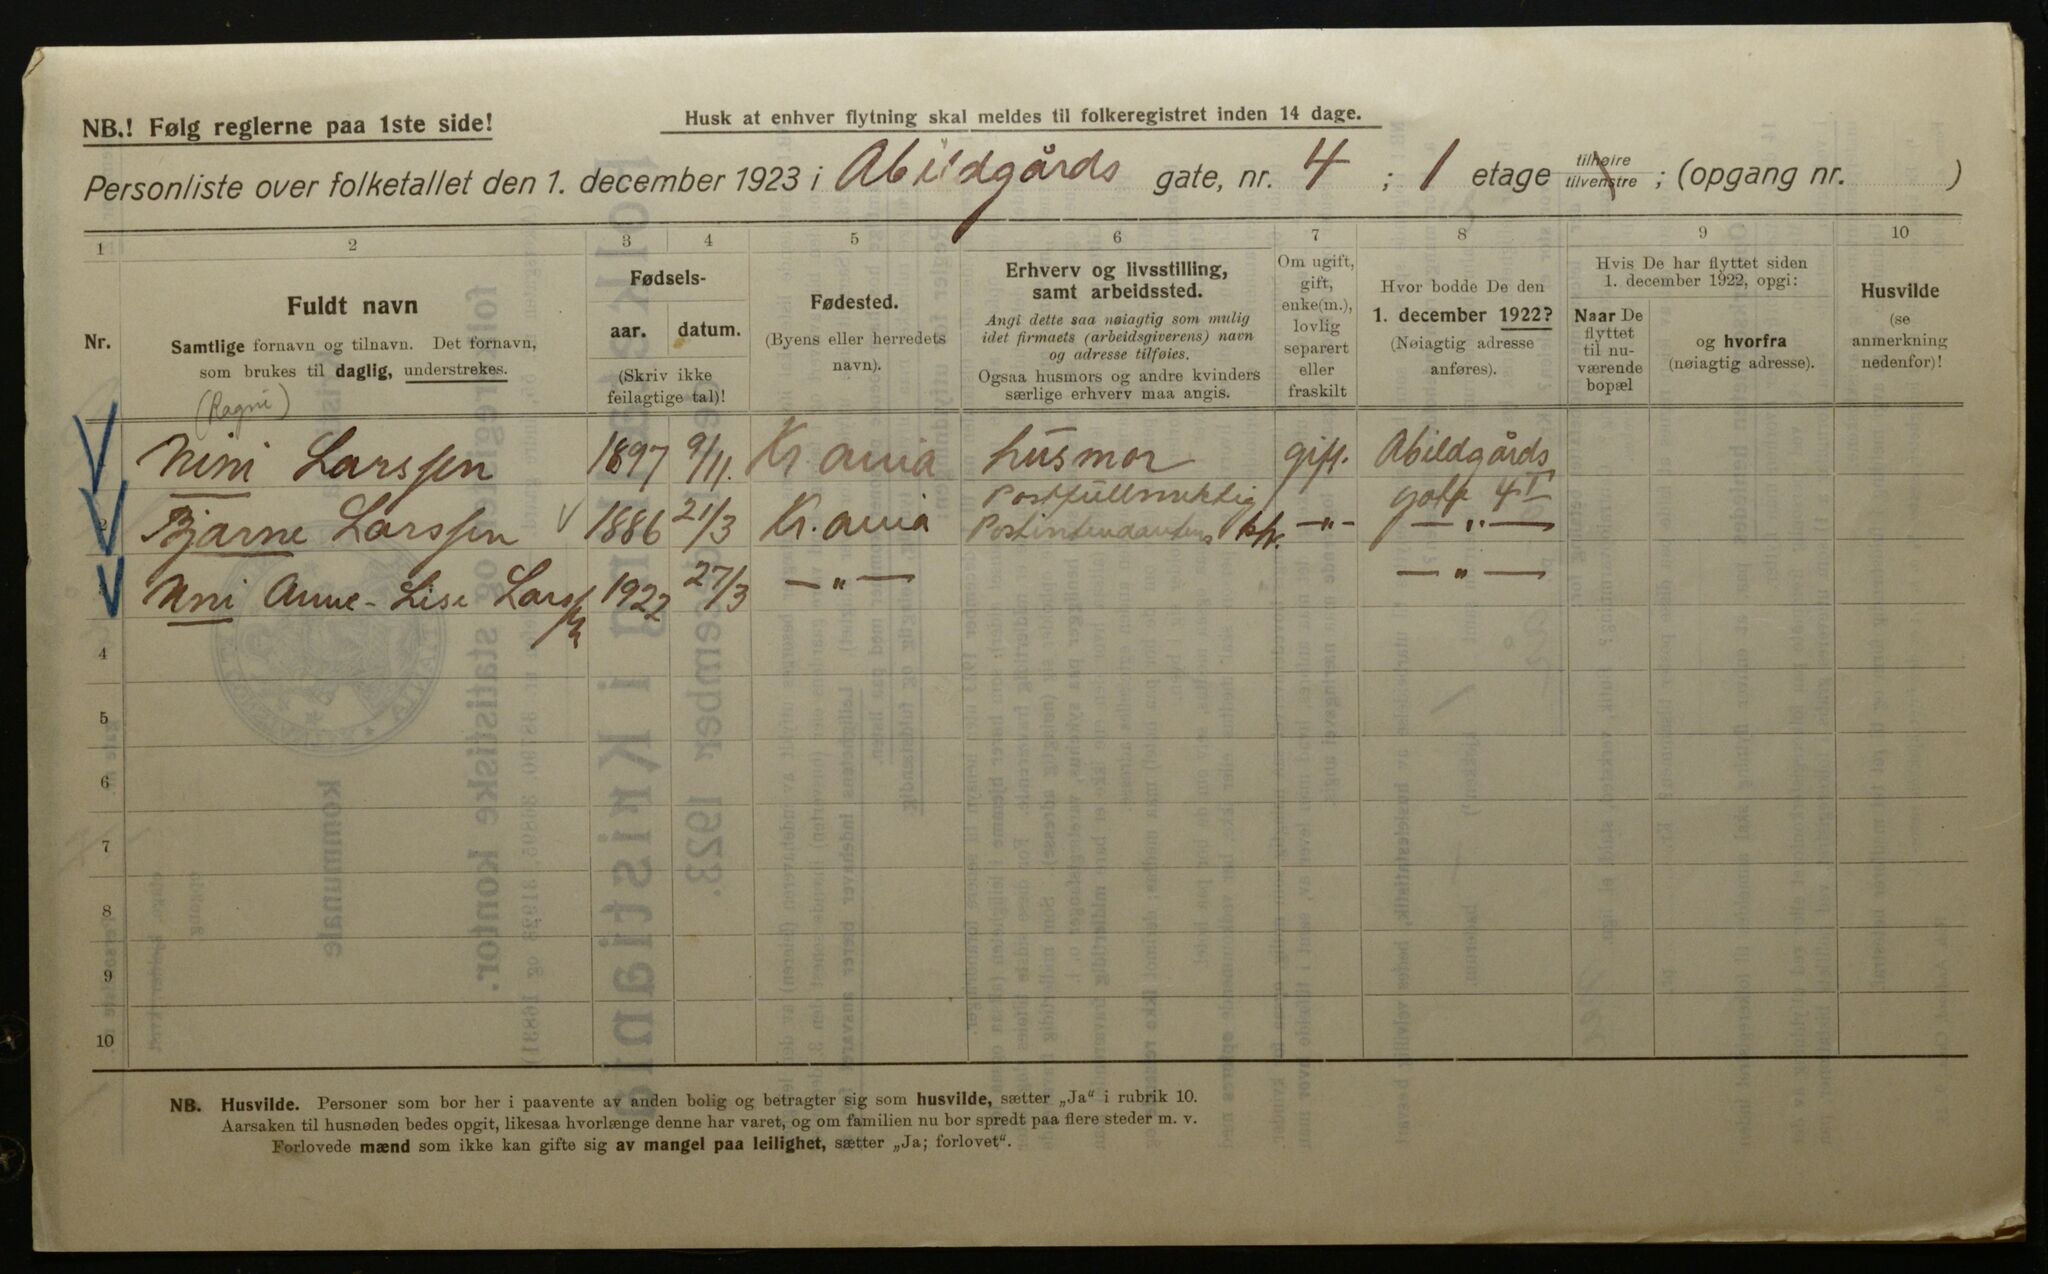 NB.! Følg reglerne paa 1ste side!
Husk at enhver flytning skal meldes til folkeregistret inden 14 dage.
Personliste over folketallet den 1. december 1923 i Abildgårds gate, nr. 4 ; 1 etage tilhøire tilvenstre ; (opgang nr. )
1 2 3 4 5 6 7 8 9 10
Nr.
Fuldt navn
Samtlige fornavn og tilnavn. Det fornavn,
som brukes til daglig, understrekes.
Fødsels-
aar. datum.
(Skriv ikke
feilagtige tal)!
Fødested.
(Byens eller herredets
navn).
Erhverv og livsstilling,
samt arbeidssted.
Angi dette saa nøiagtig som mulig
idet firmaets (arbeidsgiverens) navn
og adresse tilføies.
Ogsaa husmors og andre kvinders
særlige erhverv maa angis.
Om ugift,
gift,
enke(m.),
lovlig
separert
eller
fraskilt
Hvor bodde De den
1. december 1922?
(Nøiagtig adresse
anføres).
Hvis De har flyttet siden
1. december 1922, opgi:
Naar De
flyttet
til nu-
værende
bopæl
og hvorfra
(nøiagtig adresse).
Husvilde
(se
anmerkning
nedenfor)!
(Ragni)
Nini Larssen 1897 9/11. Kr.ania husmor gift. Abildgårds
gate 4 I
Postfullmektig
2 Bjarne Larssen 1886 21/3 Kr.ania Postintendantens — " — — " —
3 Unni Anne-Lise Larssen 1922 27/3 — " — — " —
4
5
6
7
8
9
10
NB. Husvilde. Personer som bor her i paavente av anden bolig og betragter sig som husvilde, sætter „Ja“ i rubrik 10.
Aarsaken til husnøden bedes opgit, likesaa hvorlænge denne har varet, og om familien nu bor spredt paa flere steder m. v.
Forlovede mænd som ikke kan gifte sig av mangel paa leilighet, sætter „Ja; forlovet“.